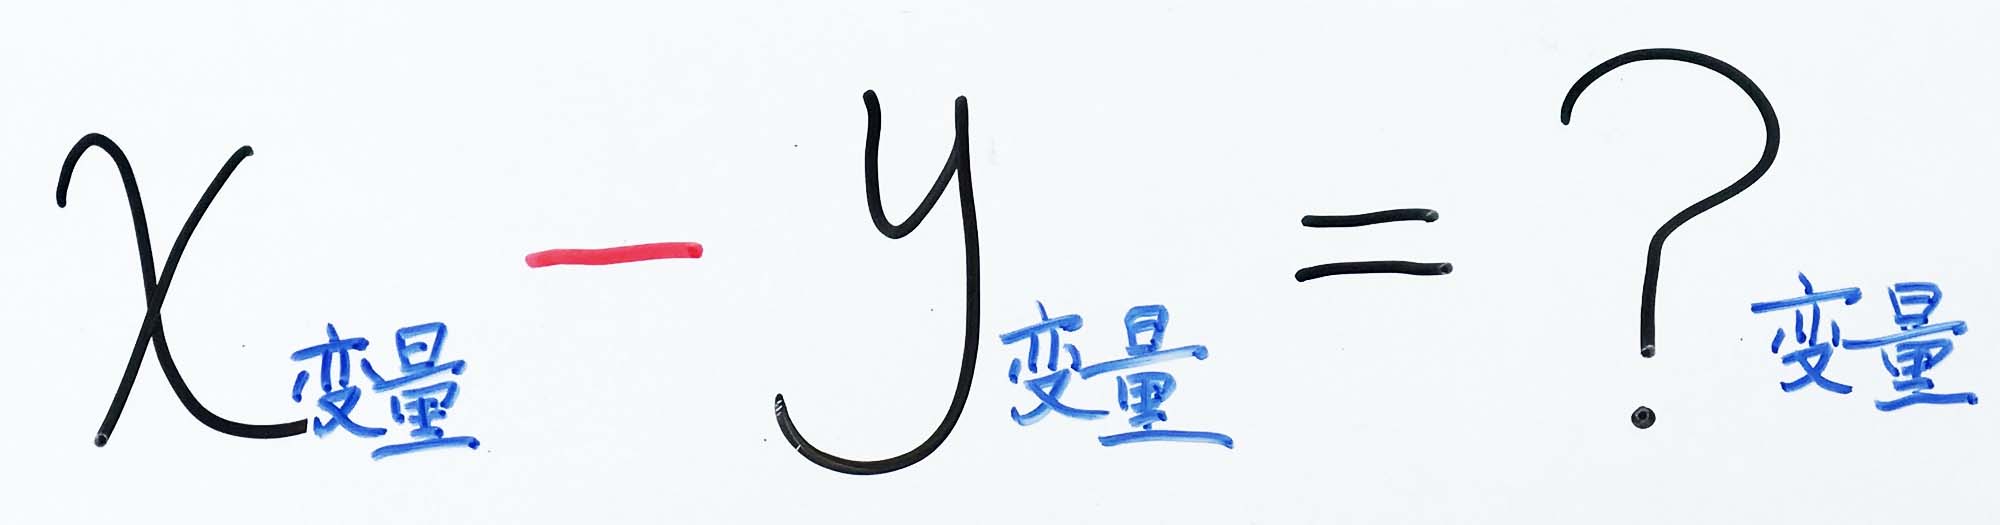 x变量 - y变量 = ?变量